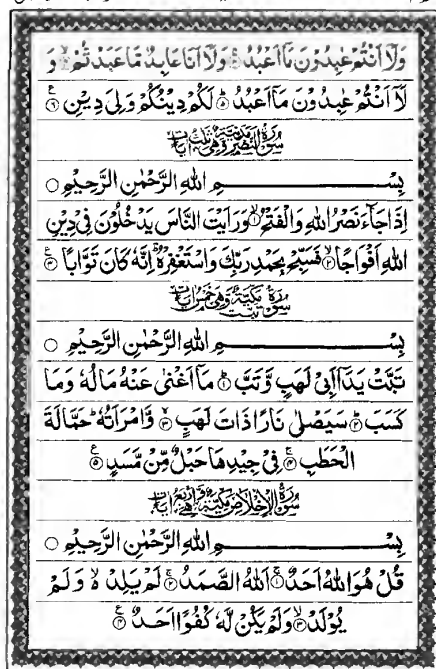 وَلَآ اَنْتُمْ عٰبِدُوْنَ مَآ اَعْبُدُ ۚ﴿۳﴾ وَلَآ اَنَا عَابِدٌ مَّا عَبَدْتُّمْ ۙ﴿۴﴾ وَ
لَآ اَنْتُمْ عٰبِدُوْنَ مَآ اَعْبُدُ ؕ﴿۵﴾ لَكُمْ دِيْنُكُمْ وَلِيَ دِيْنِ ﴿۶﴾
سُوْرَةُ النَّصْرِ مَدَنِيَّةٌ وَّهِيَ ثَلٰثُ اٰيَاتٍ
بِسْمِ اللهِ الرَّحْمٰنِ الرَّحِيْمِ ○
اِذَا جَآءَ نَصْرُ اللهِ وَالْفَتْحُ ۙ﴿۱﴾ وَرَاَيْتَ النَّاسَ يَدْخُلُوْنَ فِيْ دِيْنِ
اللهِ اَفْوَاجًا ۙ﴿۲﴾ فَسَبِّحْ بِحَمْدِ رَبِّكَ وَاسْتَغْفِرْهُ ؕ اِنَّهٗ كَانَ تَوَّابًا ﴿۳﴾
سُوْرَةُ تَبَّتْ مَكِّيَّةٌ وَّهِيَ خَمْسُ اٰيَاتٍ
بِسْمِ اللهِ الرَّحْمٰنِ الرَّحِيْمِ ○
تَبَّتْ يَدَآ اَبِيْ لَهَبٍ وَّتَبَّ ؕ﴿۱﴾ مَآ اَغْنٰى عَنْهُ مَالُهٗ وَمَا
كَسَبَ ؕ﴿۲﴾ سَيَصْلٰى نَارًا ذَاتَ لَهَبٍ ۙ﴿۳﴾ وَّامْرَاَتُهٗ ؕ حَمَّالَةَ
الْحَطَبِ ۚ﴿۴﴾ فِيْ جِيْدِهَا حَبْلٌ مِّنْ مَّسَدٍ ﴿۵﴾
سُوْرَةُ الْاِخْلَاصِ مَكِّيَّةٌ وَّهِيَ اَرْبَعُ اٰيَاتٍ
بِسْمِ اللهِ الرَّحْمٰنِ الرَّحِيْمِ ○
قُلْ هُوَ اللهُ اَحَدٌ ۚ﴿۱﴾ اَللهُ الصَّمَدُ ۚ﴿۲﴾ لَمْ يَلِدْ ۙ۬ وَلَمْ
يُوْلَدْ ۙ﴿۳﴾ وَلَمْ يَكُنْ لَّهٗ كُفُوًا اَحَدٌ ﴿۴﴾